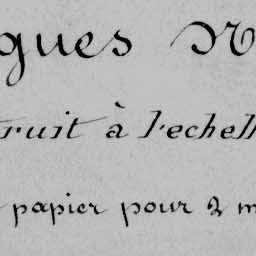 gues N
truit à l'echell
papier pour 2 m